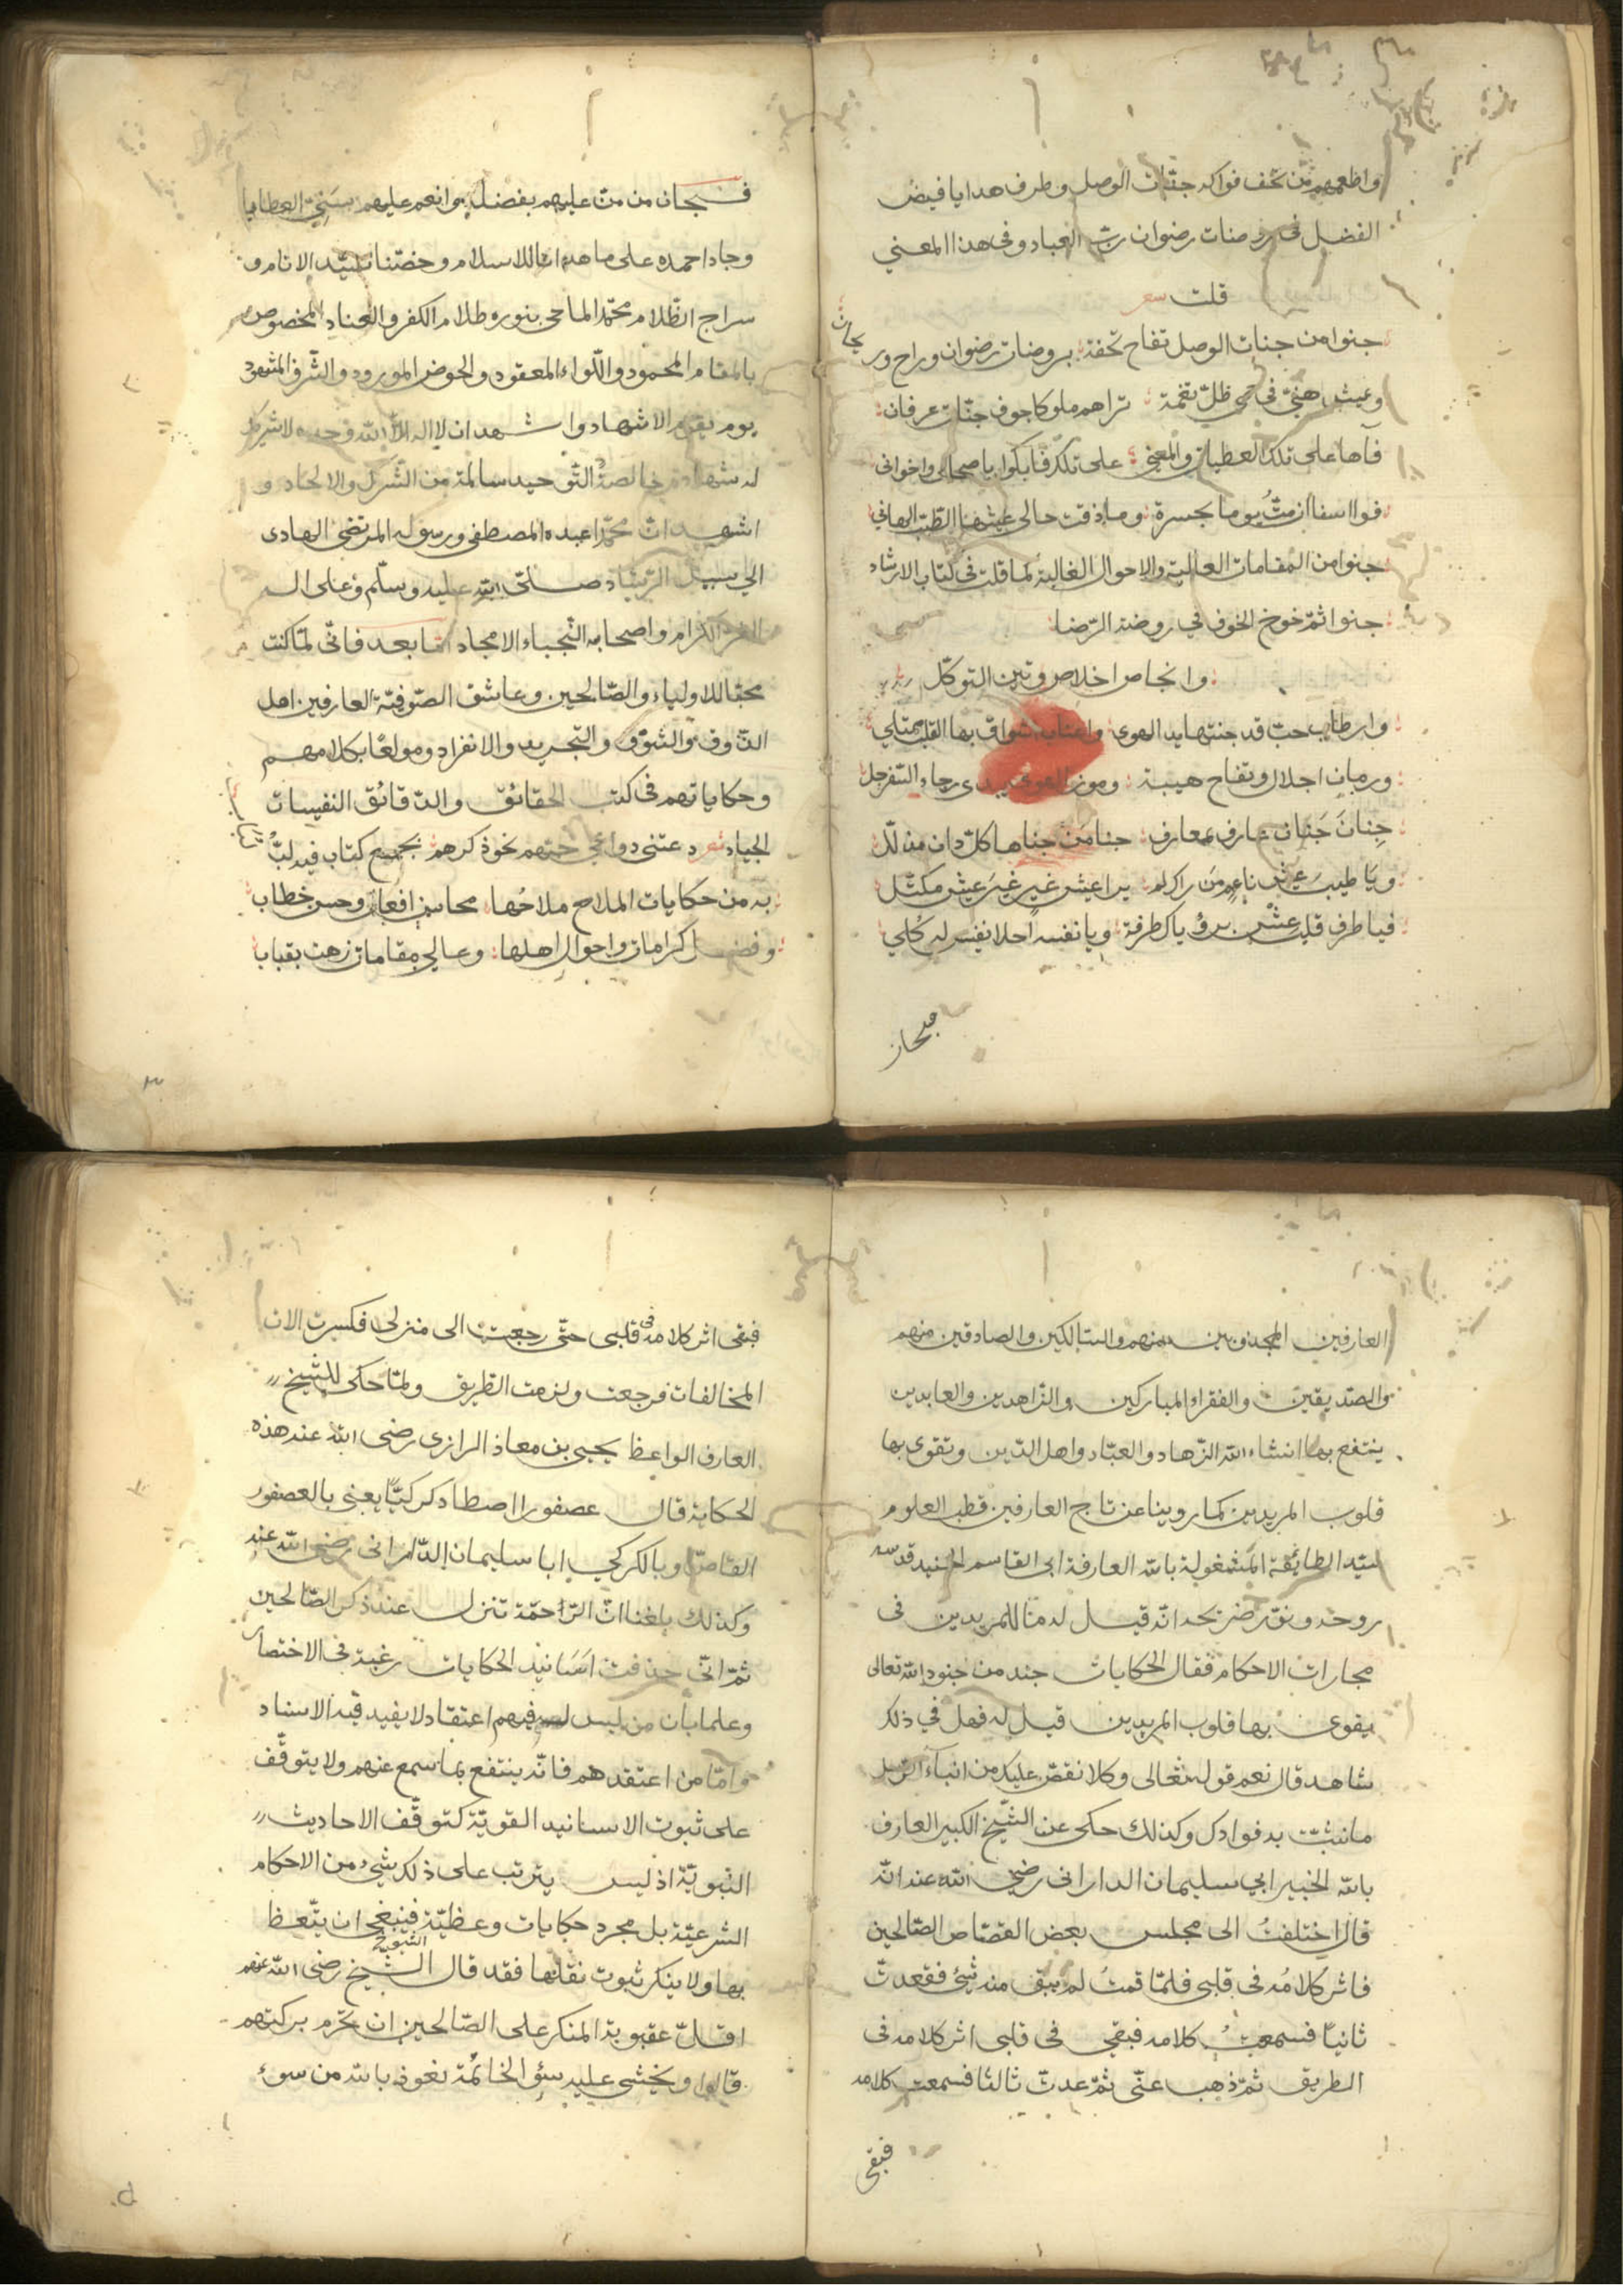 واطعمهم من تحف فواكه جنات الوصل وطرف هدايا فيض
الفضل في روضات رضوان رب العباد وفي هذا المعني
قلت شعر
جنوا من جنات الوصل تفاح تحفة بروضات رضوان وراح وريحان
وعيش هني في حمي ظل نعمة تراهم ملوكا جوف جنات عرفان
فآها على تلك العطيات والمعني على تلك فابكوا يا صحابي واخواني
فوا اسفا ان مت يوما بحسرة وما ذقت حالي عيشها الطيب الهاني
جنوا من المقامات العالية والاحوال الغالية كما قلت في كتاب الارشاد
جنوا ثم خوخ الخوف في روضة الرضا
وانجاص اخلاص وتين التوكل
وارطاب حب قد جنتها يد الهوى واعناب اشواق بها القلب ممتلي
ورمان اجلال وتفاح هيبة وموز الهوى يبدى رجاء السفرجل
جنان جنان عارف بمعارف جنا من جناها كل دان مذلل
ويا طيب عيش ناعم من راكم يرا عيش غير غير عيش مكتل
فيا طرف قلب عش برؤياك طرفة ويا نفسه احلا نفيس له كلي
فبحان
فسبحان من من عليهم بفضله وانعم عليهم بسني العطايا
وجاد احمده على ما هدانا للاسلام وخصنا بسيد الانام و
سراج الظلام محمد الماحي بنوره ظلام الكفر والعناد المخصوص
بالمقام المحمود واللواء المعقود والحوض المورود والشرف المشهود
يوم يقوم الاشهاد واشهد ان لا اله الا الله وحده لا شريك
له شهادة خالصة التوحيد سالمة من الشرك والالحاد و
اشهد ان محمدا عبده المصطفي ورسوله المرتضي الهادى
الي سبيل الرشاد صلى الله عليه وسلم وعلى اله
الغر الكرام واصحابه النجباء الامجاد اما بعد فاني لما كنت
محبا للاولياء والصالحين وعاشق الصوفية العارفين اهل
الذوق والشوق والتجريد والانفراد ومولعا بكلامهم
وحكاياتهم في كتب الحقائق والدقائق النفيسات
الجياد شعر دعتني دواعي حبهم نحو ذكرهم بجميع كتاب فيه لب لباب
به من حكايات الملاح ملاحها محاسن افعال وحسن خطاب
وفضل كرامات واحوال اهلها وعالي مقامات زهت بقباب
العارفين المجذوبين منهم والسالكين والصادقين منهم
والصديقين والفقراء المباركين والزاهدين والعابدين
ينتفع بها انشاء الله الزهاد والعباد واهل الدين وتقوى بها
قلوب المريدين كما روينا عن تاج العارفين قطب العلوم
سيد الطائفة المشغولة بالله العارفة ابي القاسم الجنيد قدس
روحه ونور ضريحه انه قيل له ما للمريدين في
مجارات الاحكام فقال الحكايات جند من جنود الله تعالى
يقوى بها قلوب المريدين قيل له فهل في ذلك
شاهد قال نعم قوله تعالى وكلا نقص عليك من انباء الرسل
ما نثبت به فوادك وكذلك حكى عن الشيخ الكبير العارف
بالله الخبير ابي سليمان الداراني رضي الله عنه انه
قال اختلفت الى مجلس بعض القصاص الصالحين
فاثر كلامه في قلبي فلما قمت لم يبق منه شئ فقعدت
ثانيا فسمعت كلامه فبقي في قلبي اثر كلامه في
الطريق ثم ذهب عني ثم عدت ثالثا فسمعت كلامه
فبقى
فبقى اثر كلامه في قلبي حتى رجعت الى منزلي فكسرت الات
المخالفات فرجعت ولزمت الطريق ولما حكي للشيخ
العارف الواعظ يحيى بن معاذ الرازى رضى الله عنه هذه
الحكاية قال عصفورا اصطاد كركيا يعني بالعصفور
القاص وبالكركي ابا سليمان الداراني رضي الله عنه
وكذلك بلغنا ان الرحمة تنزل عند ذكر الصالحين
ثم اني حذفت اسانيد الحكايات رغبة في الاختصار
وعلما بأن من ليس له فيهم اعتقاد لا يفيد فيه الاسناد
واما من اعتقدهم فانه ينتفع بما سمع عنهم ولا يتوقف
على ثبوت الاسانيد القوية كتوقف الاحاديث
النبوية اذ ليس يترتب على ذلك شئ من الاحكام
الشرعية بل مجرد حكايات وعظية فينبغي ان يتعظ
بها ولا ينكر ثبوت نقلتها فقد قال الشيخ رضى الله عنهم
اقل عقوبة المنكر على الصالحين ان يحرم بركتهم
قالوا ويخشى عليه سوء الخاتمة نعوذ بالله من سوء